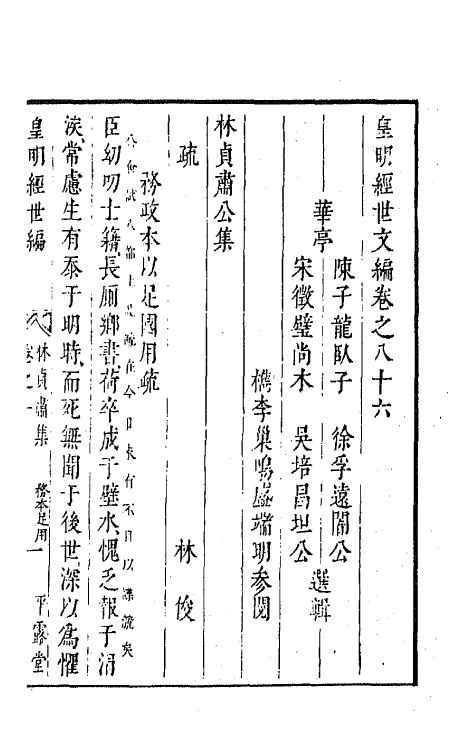 皇明經世文編卷之八十六
華亭
陳子龍臥子　徐孚遠闇公
宋徵璧尚木　吳培昌坦公
選輯
檇李巢鳴盛端明參閱
林貞肅公集
疏　林俊
務政本以足國用疏
臣幼叨士籍、長厠鄉書、荷卒成于璧水、愧乏報于涓
涘、常慮生有忝于明時、而死無聞于後世、深以為懼
皇明經世編　林貞肅集　務本足用　一　平露堂